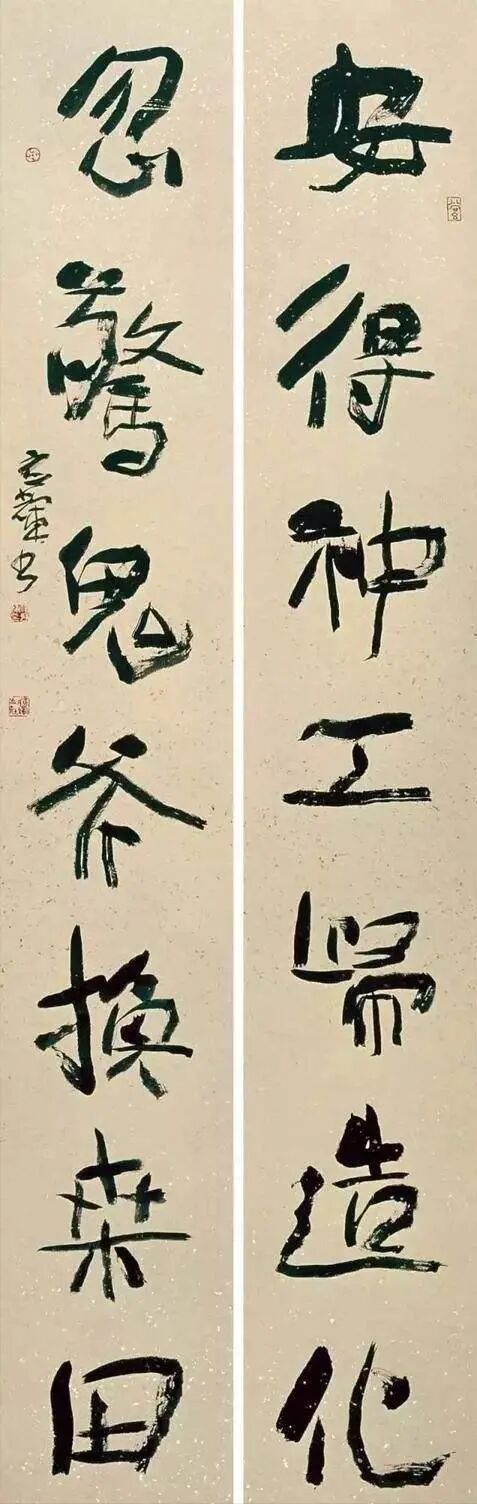 安得神工歸造化
忽驚鬼斧換桑田